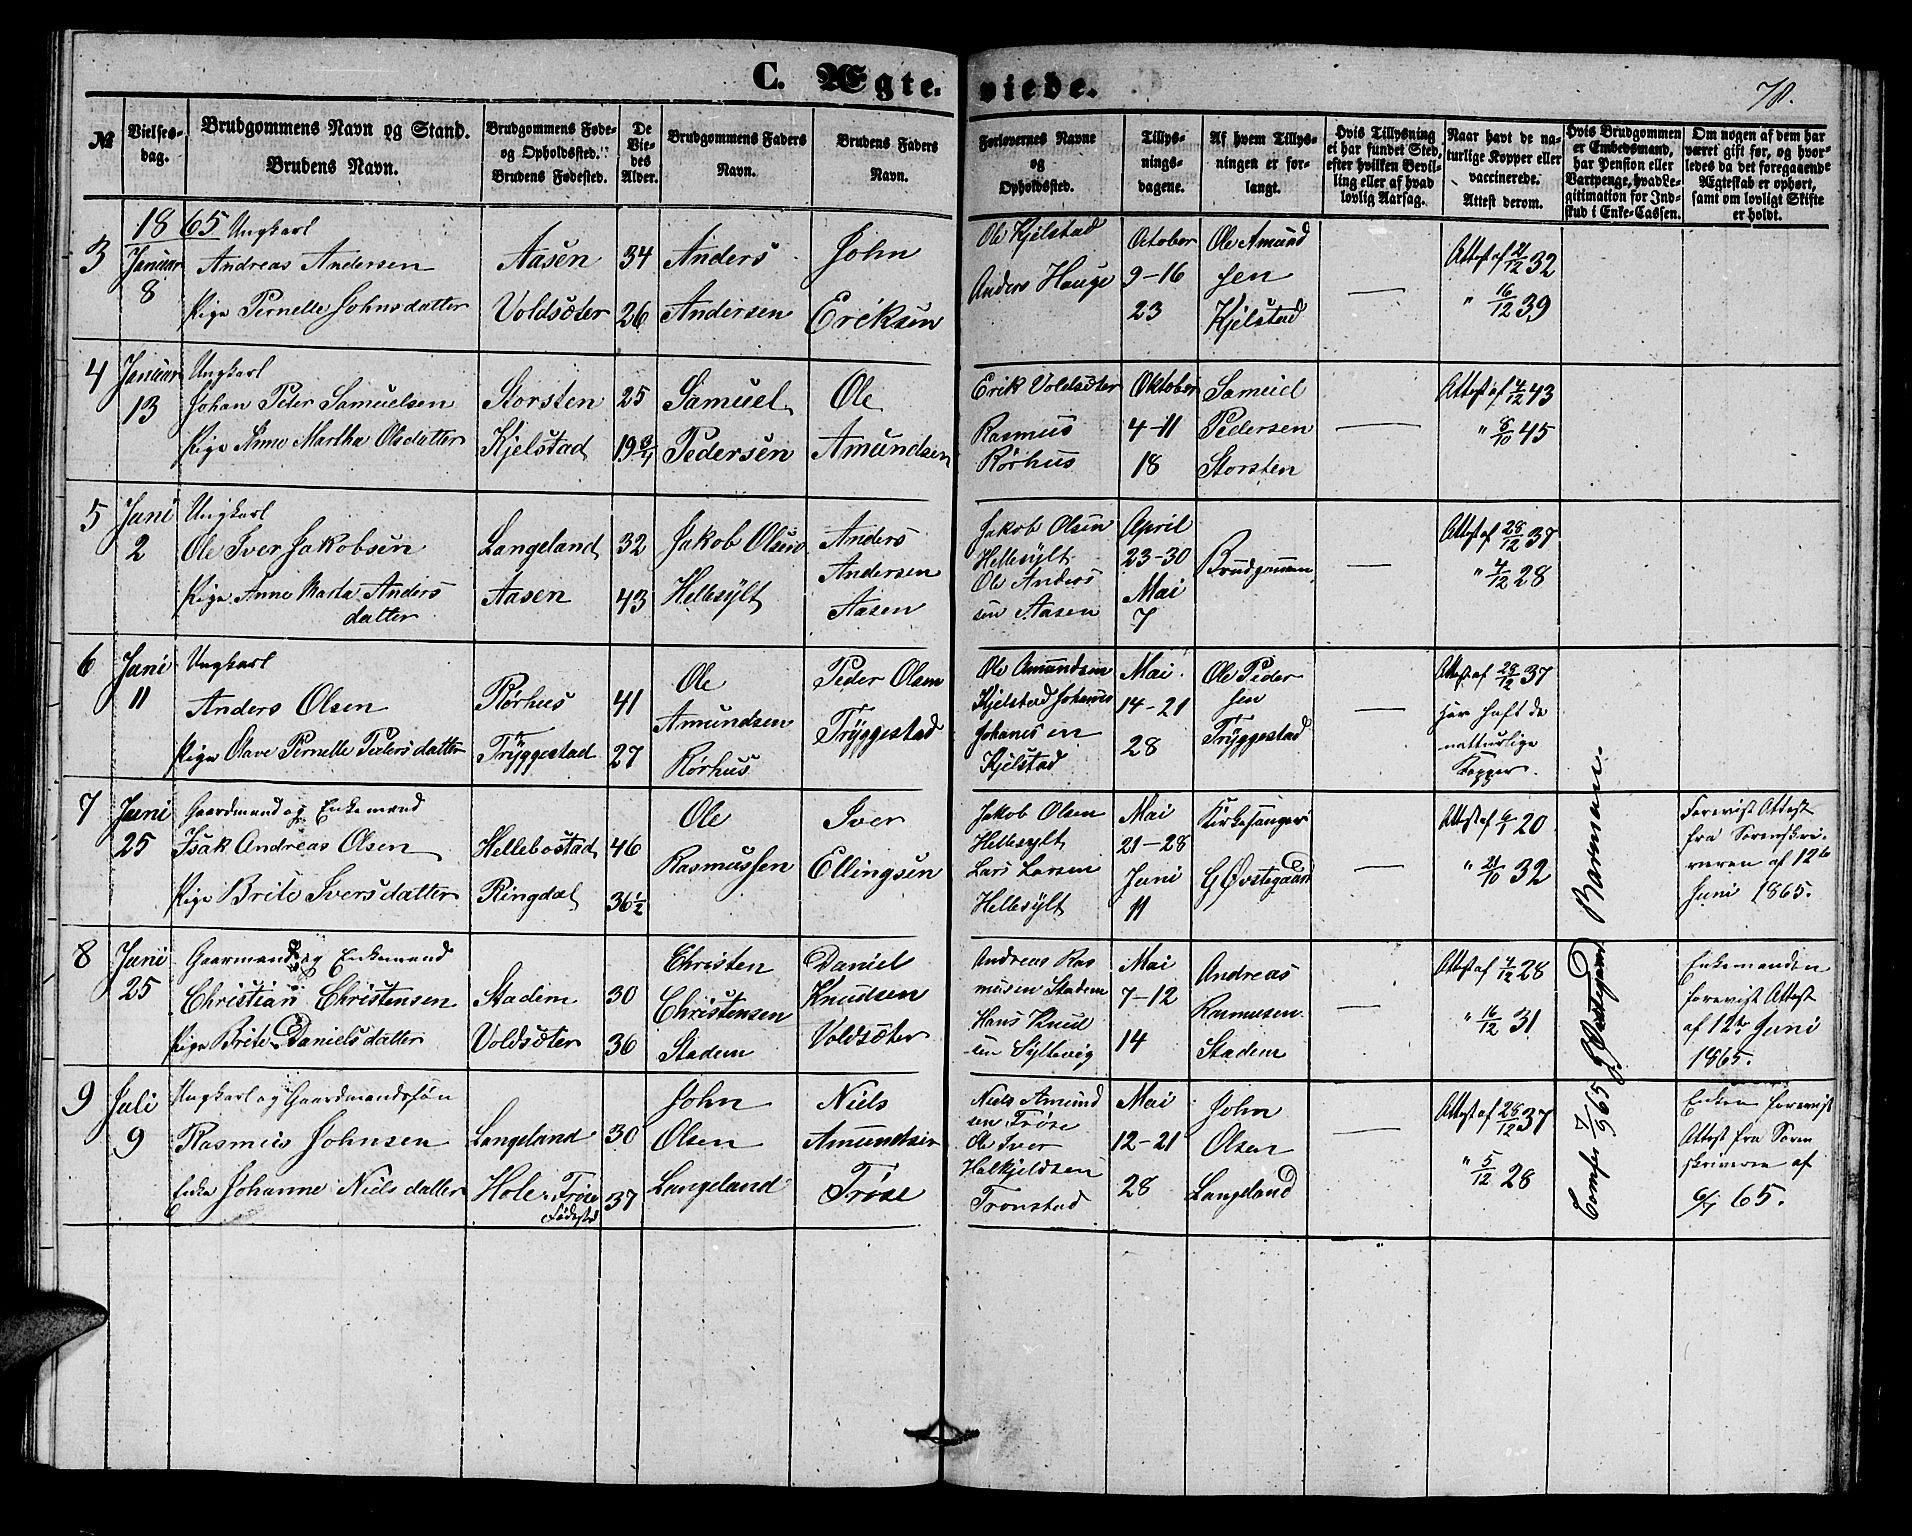 C. Ægte. viede.
78.
№
Vielses-
dag.
Brudgommens Navn og Stand.
Brudens Navn.
Brudgommens Føde-
og Opholdssted.
Brudens Fødested.
De
Vie-
des
Alder.
Brudgommens Faders
Navn.
Brudens Faders
Navn.
Forlovernes Navne
og
Opholdssted.
Tillys-
nings-
dagene.
Af hvem Tillys-
ningen er for-
langt.
Hvis Tillysning
ei har fundet Sted,
efter hvilken Bevil-
ling eller af hvad
lovlig Aarsag.
Naar havt de na-
turlige Kopper eller
vaccinerede.
Attest derom.
Hvis Brudgommen
er Embedsmand,
har Pension eller
Vartpenge, hvad Le-
gitimation for Ind-
skud i Enke-Cassen.
Om nogen af dem har
været gift før, og hvor-
ledes da det foregaaende
Ægteskab er ophørt,
samt om lovligt Skifte
er holdt.
1865
3
Januar
8
Ungkarl
Andreas Andersen
Pige Pernelle Johnsdatter
Aasen
Voldsæter
34
26
Anders
Andersen
John
Eriksen
Ole Kjelstad
Anders Hauge
October
9-16
23
Ole Amund
sen
Kjelstad
—
Attest af 21/12 32
" 16/12 39
4
Januar
13
Ungkarl
Johan Peter Samuelsen
Pige Anne Martha Olsdatter
Storsten
Kjelstad
25
19
Samuel
Pedersen
Ole
Amundsen
Erik Voldsæter
Rasmus
Rørhus
Oktober
4-11
18
Samuel
Pedersen
Storsten
—
Attest af 4/12 43
" 8/10 45
5
Juni
2
Ungkarl
Ole Iver Jakobsen
Pige Anne Marta Anders
datter
Langeland
Aasen
32
43
Jakob Olsen
Hellesylt
Anders
Andersen
Aasen
Jakob Olsen
Hellesylt
Ole Anders
sen Aasen
April
23-30
Mai
7
Brudgommen
—
Attest af 28/12 37
" 4/12 28
6
Juni
11
Ungkarl
Anders Olsen
Pige Olave Pernelle Pedersdatter
Rørhus
Tryggestad
41
27
Ole
Amundsen
Rørhus
Peder Olsen
Tryggestad
Ole Amundsen
Kjelstad Johannes
Johanes en
Kjelstad
Mai
14-21
28
Ole Peder
sen
Tryggestad
—
Attest af 28/12 37
har haft de
natturlige
Kopper.
7
Juni
25
Gaardmand og Enkemand
Isak Andreas Olsen
Pige Brite Iversdatter
Hellebostad
Ringdal
46
36 1/2
Ole
Rasmussen
Iver
Ellingsen
Jakob Olsen
Hellesylt
Lars Larsen
Hellesylt
Mai
21-28
Juni
11
Kirkesanger
G Østegaard
—
Attest af 6/1 20
" 21/10 32
Forevist Attest
fra Sorenskri-
veren af 12te
Juni 1865.
8
Juni
25
Gaarmand og Enkemand
Christian Christensen
Pige Brite Danielsdatter
Stadem
Voldsæter
30
36
Christen
Christensen
Stadem
Daniel
Knudsen
Voldsæter
Andreas Ras
musen Stadem
Hans Knud
sen Syltevig
Mai
7-12
14
Andreas
Rasmusen
Stadem
—
Attest af 4/12 28
" 16/12 31
Enkemanden
forevist Attest
af 12te Juni
1865.
9
Juli
9
Ungkarl og Gaardmandssøn
Rasmus Johnsen
Enke Johanne Nielsdatter
Langeland
Hole Trøse
Fødested
30
37
John
Olsen
Langeland
Niels
Amundsen
Trøse
Niels Amund
sen Trøse
Ole Iver
Halkjeldsen
Tronstad
Mai
12-21
28
John
Olsen
Langeland
—
Attest af 28/12 37
" 5/12 28
Enken forevist
Attest fra Soren
skriveren af
6/7 65.
65 G Østegaard